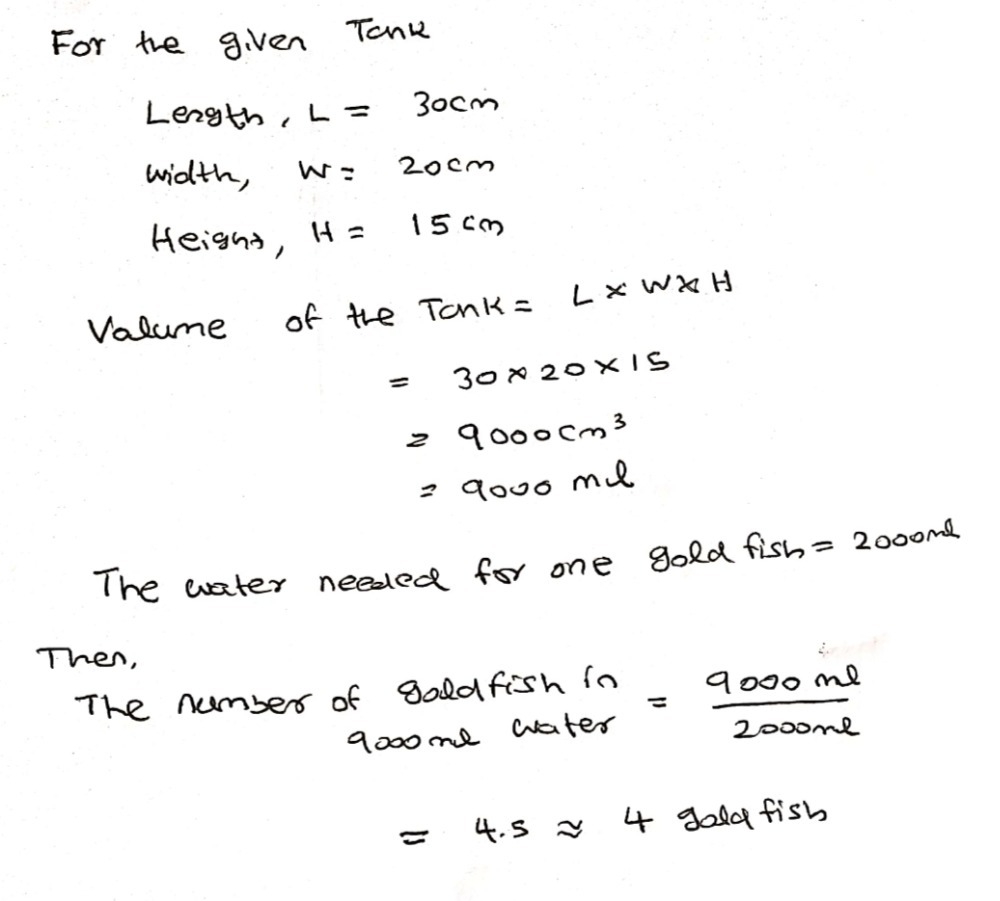 For the given Tank
Length, L = 30cm
Width, W = 20cm
Height, H = 15cm
Valume of the Tank = L × W × H
= 30 × 20 × 15
= 9000cm³
= 9000 ml
The water needed for one gold fish = 2000ml
Then,
The number of goldfish in 9000ml water = 9000 ml / 2000ml
= 4.5 ≈ 4 gold fish